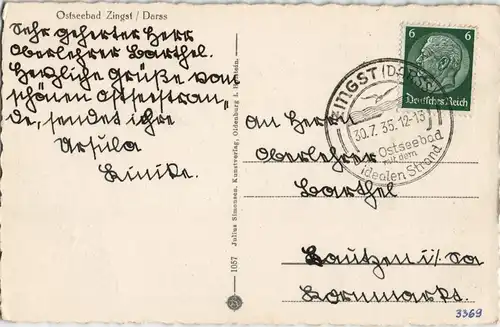 Ostseebad Zingst / Darss
Sehr geherter Herr
Oberlehrer Barthel.
Herzliche Grüße vom
schönen Ostseestran,
de, sendet ihre
Ursula
1057 Julius Simonsen, Kunstverlag, Oldenburg i. Holstein.
6 6
Deutsches Reich
ZINGST (DARSS)
30.7.35.12-13
Ostseebad
mit dem
idealen Strand
An Herr
Oberlehrer
Barthel
Bautzen i/Sa
Kornmarkt.
3369